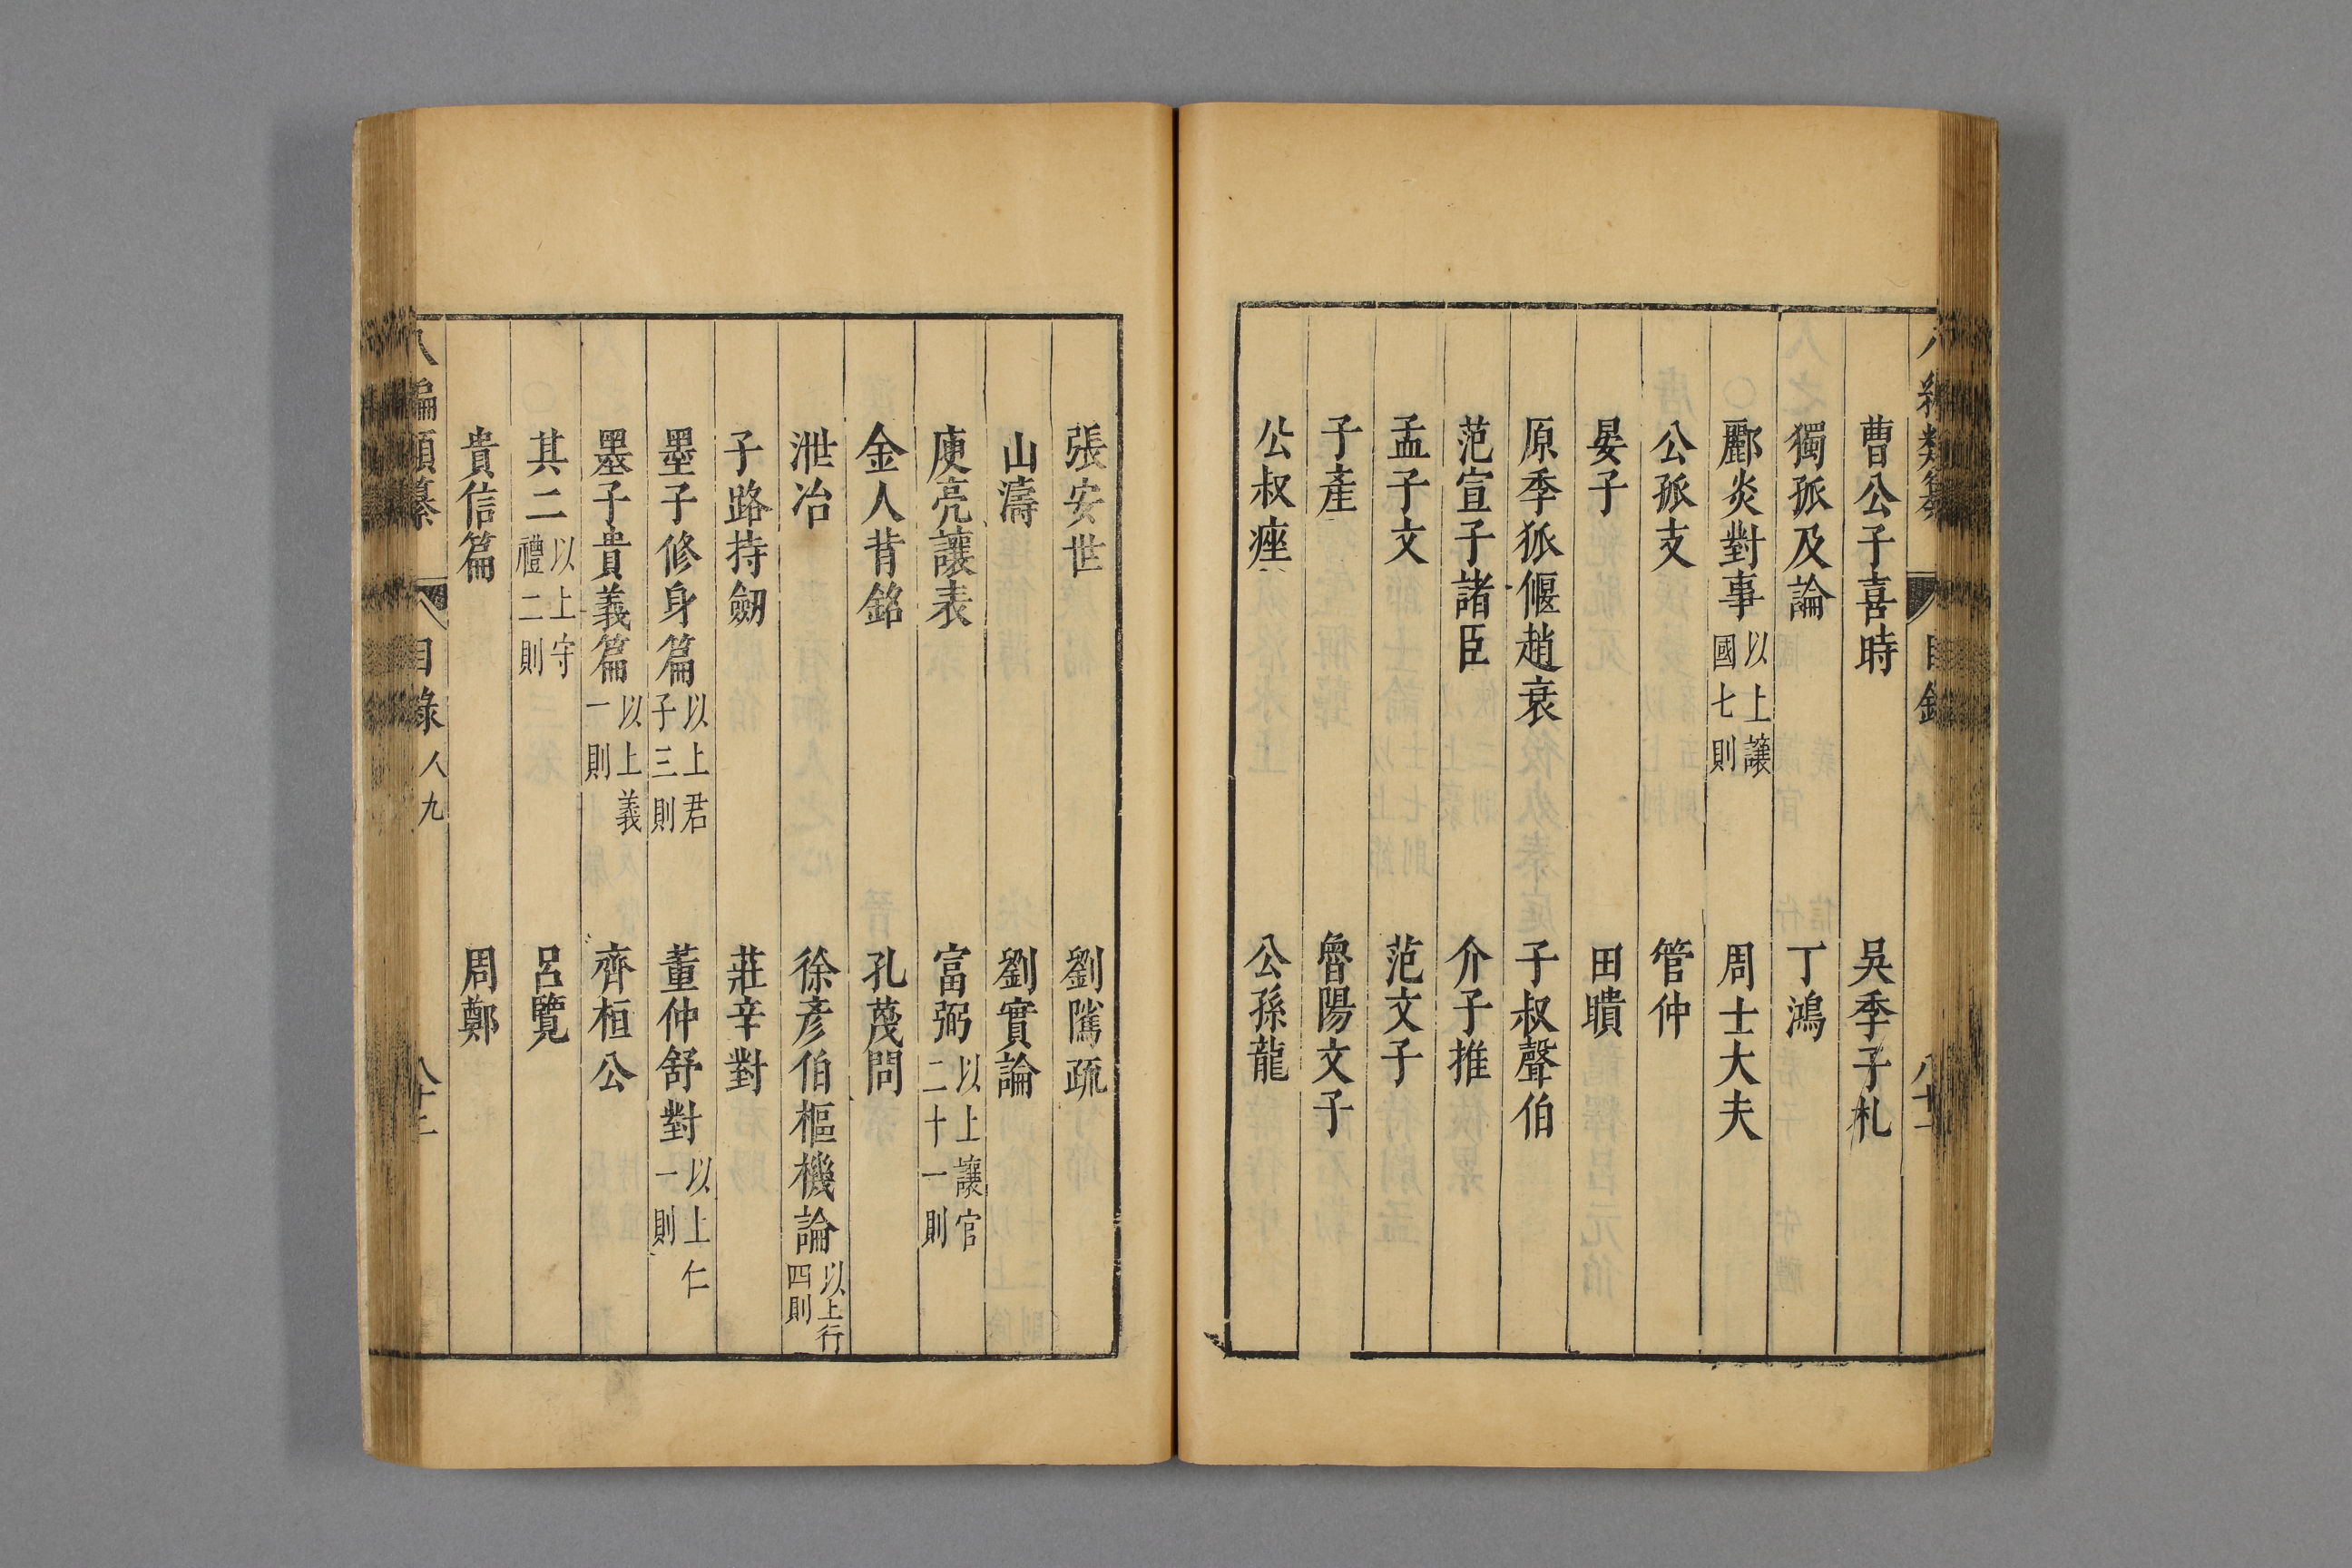 曹公子喜時 吳季子札
獨孤及論 丁鴻
酈炎對事 以上讓國七則 周士大夫
公孫支 管仲
晏子 田瞶
原季狐偃趙衰 子叔聲伯
范宣子諸臣 介子推
孟子文 范文子
子產 魯陽文子
公叔痤 公孫龍
張安世 劉隲疏
山濤 劉實論
庾亮讓表 富弼 以上讓官二十一則
金人背銘 孔蔑問
泄冶 徐彥伯樞機論 以上行四則
子路持劒 莊辛對
墨子修身篇 以上君子三則 董仲舒對 以上仁一則
墨子貴義篇 以上義一則 齊桓公
其二 以上守禮二則 呂覽
貴信篇 周鄭
八編類纂 目錄 人九